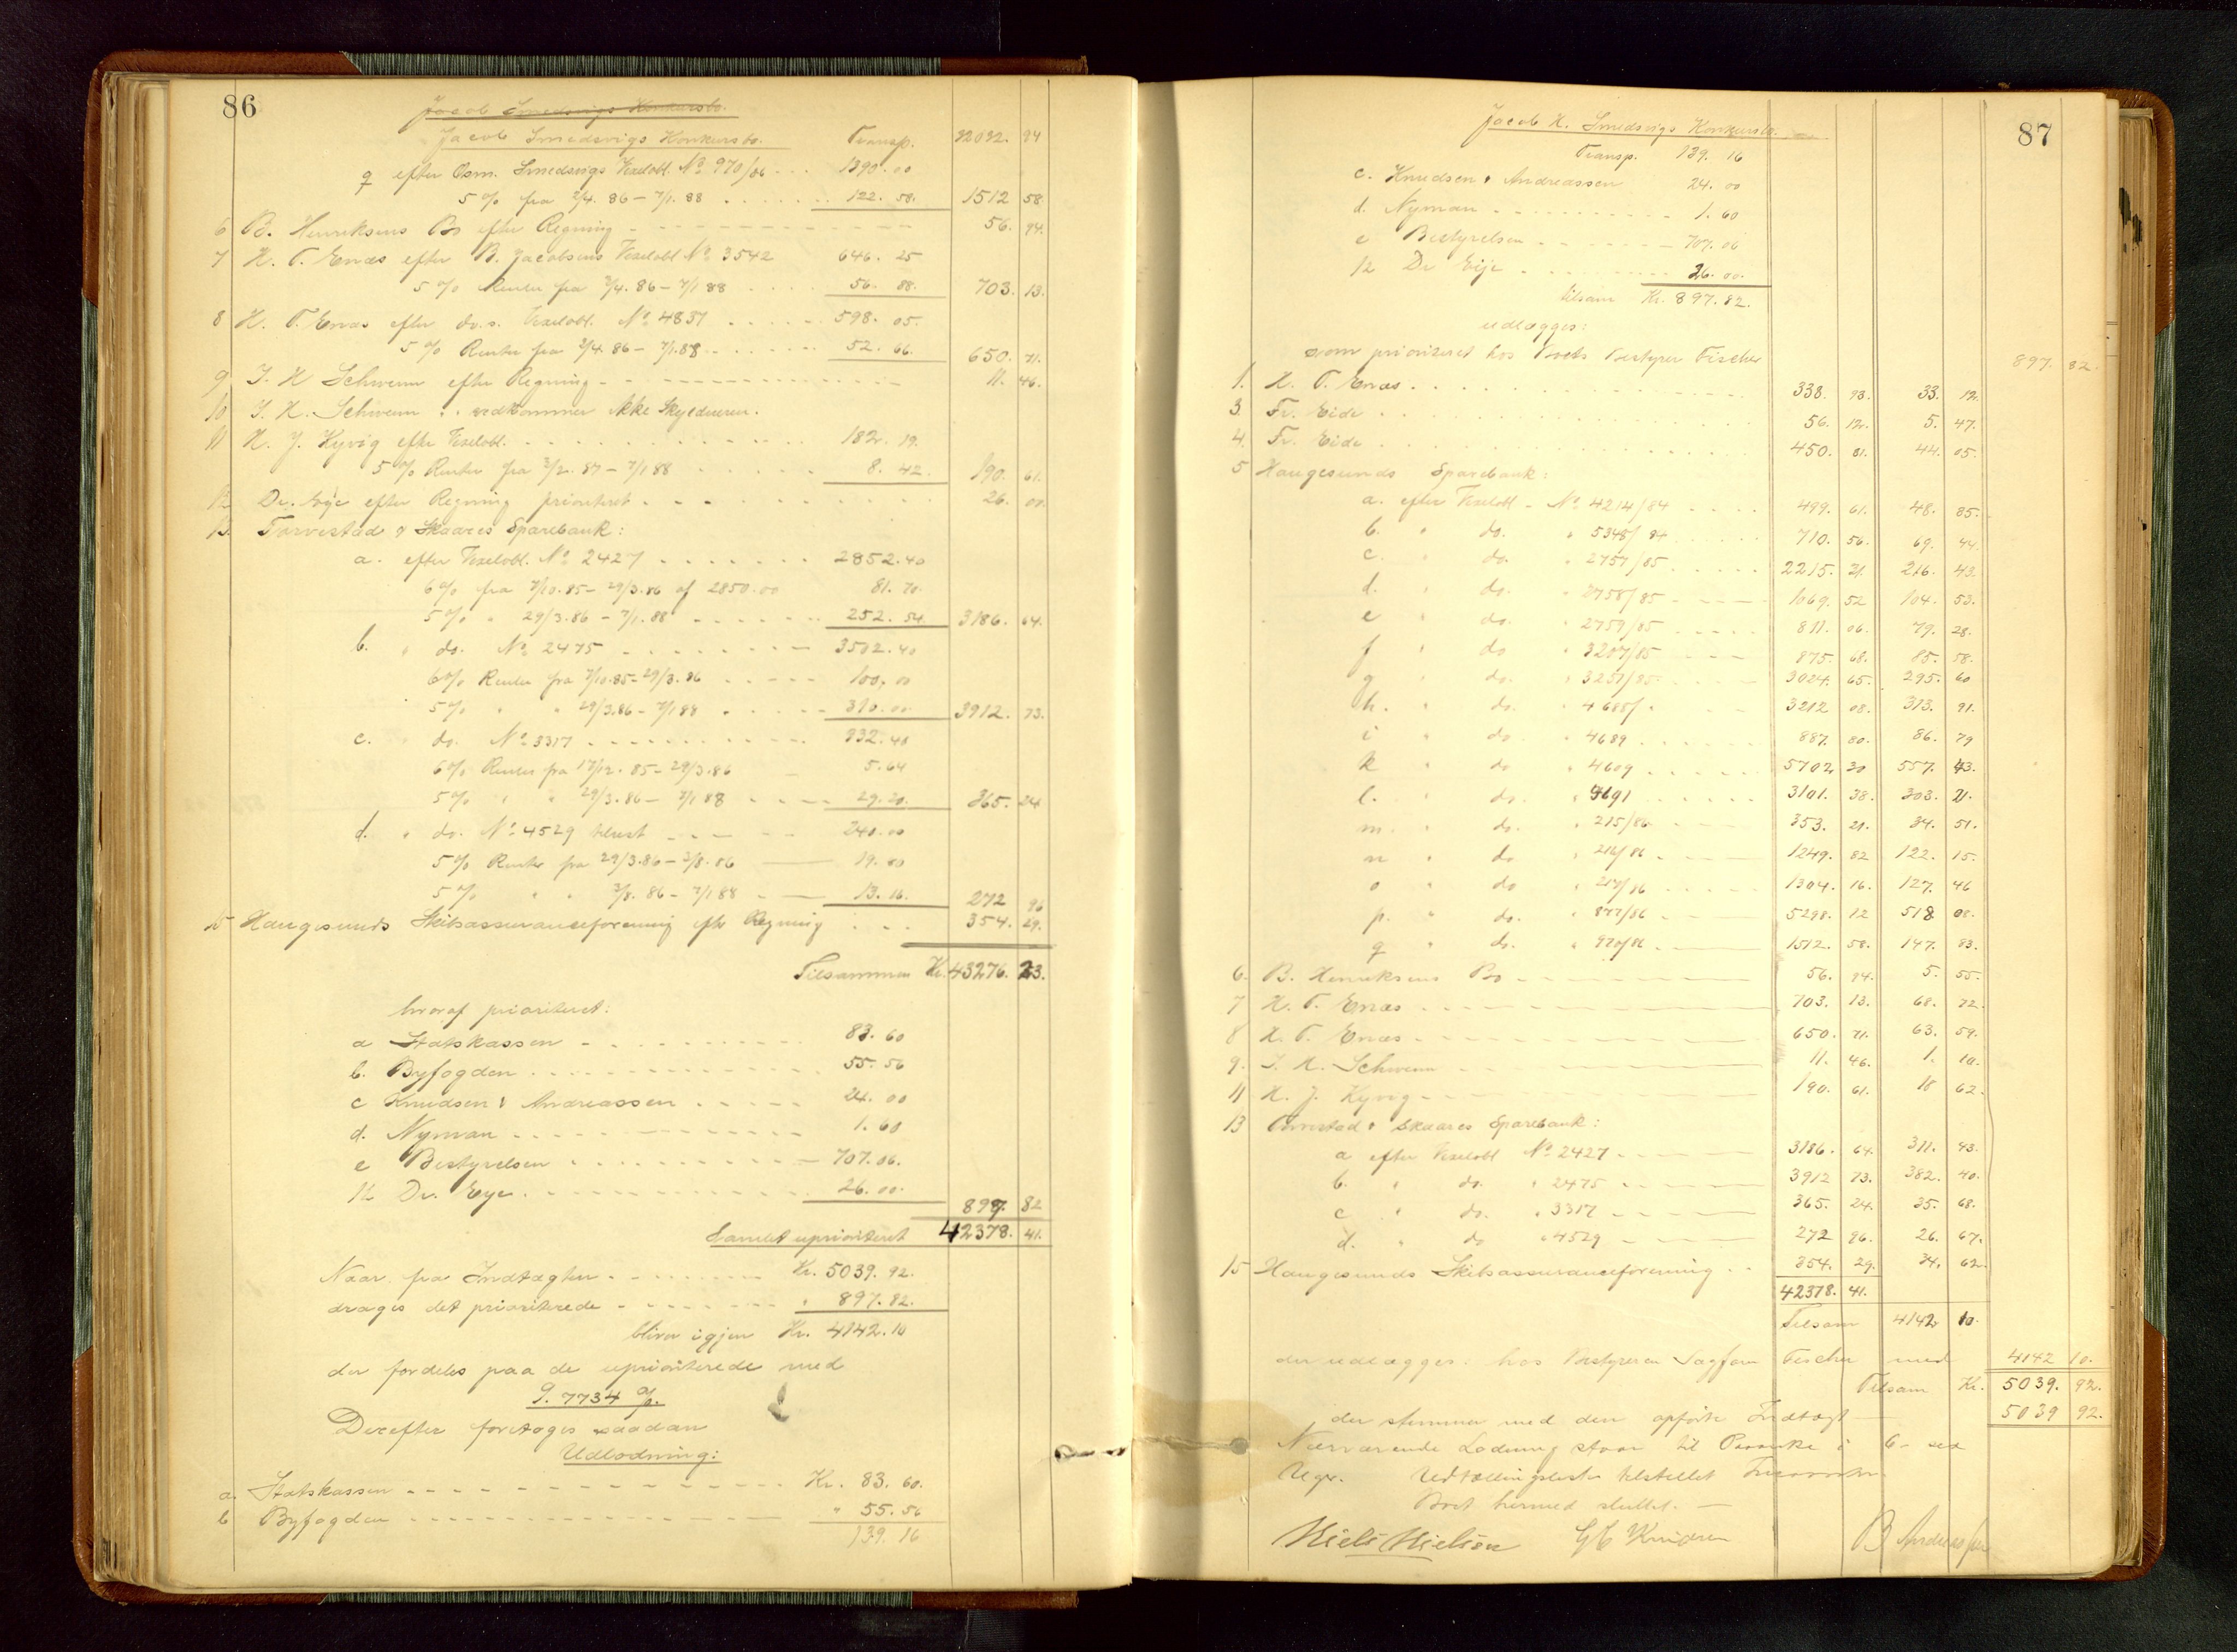 86
Jacob Smedsvigs Konkursbo.
Jacob Smedsvigs Konkursbo. Transp. 32032. 94
q efter Osm. Smedsvigs Vexelobl. No 970/86 . . . 1390.00
5 % fra 2/4. 86 - 7/1. 88 . . . . . . . 122. 58. 1512 58.
6 B. Henriksens Bo efter Regning - - - - - - 56. 94.
7 H. T. Enæs efter B. Jacobsens Vexelobl No 3542 646. 25
5 % Renter fra 2/4. 86 - 7/1 88 . . . . 56. 88. 703. 13.
8 H. T. Enæs efter do. s. Vexelobl. No 4837 . . . . 598. 05.
5 % Renter fra 2/4 86 - 7/1.88 . . . . . . 52. 66. 650. 71.
9 J. H Schwenn efter Regning - - - - - - 11. 46.
10 J. H. Schwenn . . vedkommer ikke Skyldneren.
11 H. J. Kyvig efter Vexelobl. . . . . . . . 182. 19.
5 % Renter fra 3/2. 87 - 7/1 88 . . . . . 8. 42. 190. 61.
12 Dr. Eije efter Regning prioriteret . . . . . 26. 00.
13. Torvestad & Skaares Sparebank:
a. efter Vexelobl. No 2427 . . . . . . . 2852.40
6 % fra 7/10.85 - 29/3.86 af 2850.00 81. 70.
5 % " 29/3.86 - 7/1.88 . . . . . . 252. 54. 3186. 64.
b. " do. No 2475 . . . . . . . 3502.40
6 % Renter fra 7/10.85 - 29/3.86 . . . . . 100,00
5 % " " 29/3.86 - 7/1 88 . . . . . 310.00 3912. 73.
c. " do. No 3317 . . . . . . . . 332.40
6 % Renter fra 17/12. 85 - 29/3.86 5.64
5 % " " 29/3.86 - 7/1 88 . . . . 29.20. 365. 24
d. " do. No 4529 tilrest . . . . . 240.00
5 % Renter fra 29/3.86 - 3/8.86 19.80
5 % " " 3/8. 86 - 7/1 88 . 13. 16. 272 96
15 Haugesunds Skibsassuranceforening efter Regning . . . 354. 29.
Tilsammen Kr. 43276. 23.
hvoraf prioriteret:
a Statskassen - . . . . . . . 83. 60
b. Byfogden . . . . . . . . 55.56
c Knudsen & Andreassen . . . . . 24. 00
d. Nyman . . . . . . . . 1. 60
e Bestyrelsen . . . . . . . 707.06.
12 Dr. Eye . . . . . . . . 26.00. 897. 82
Samlet uprioriteret 42378. 41.
Naar fra Indtægten . . . . . . Kr. 5039. 92.
drages det prioriterede . . . . . . " 897. 82.
bliver igjen Kr. 4142.10
der fordeles paa de uprioriterede med
9.7734 %.
Derefter foretages saadan
Udlodning:
a. Statskassen - - - - - - - - Kr. 83. 60.
b Byfogden - - - - - - - - " 55.56
139. 16
87
Jacob H. Smedsvigs Konkursbo.
Transp. 139. 16
c. Knudsen & Andreassen 24.00
d. Nyman . . . . . . . 1.60
e Bestyrelsen . . . . . . 707.06
12 Dr Eije . . . . . . . 26.00.
tilsam Kr. 897. 82.
udlægges:
som prioriteret hos Boets Bestyrer Fischer 897. 82.
1. H. T. Enæs . . . . . . . . 338. 93. 33. 12.
3. Fr. Eide . . . . . . . . 56. 12. 5. 47.
4. Fr. Eide . . . . . . . . 450. 81. 44. 05.
5 Haugesunds Sparebank:
a. efter Vexelobl - No 4214/84 . . . . 499. 61. 48. 85.
b. " do. " 5348/84 . . . . 710. 56. 69. 44.
c. " do. " 2757/85 . . . . 2215. 21. 216. 43.
d. " do. " 2758/85 . . . . 1069. 52 104. 53.
e " do. " 2759/85 . . . . 811. 06. 79. 28.
f " do " 3207/85 . . . . 875. 68. 85. 58.
g " do. " 3251/85 . . . . 3024. 65. 295. 60
h. " do. " 4685/ . . . . 3212 08. 313. 91.
i " do. " 4689 . . . . 887. 80. 86. 79
k " do " 4609 . . . . 5702 30 557. 43.
l. " do. " 4691 . . . . 3101. 38. 303. 21.
m. " do. " 215/86 . . . . 353. 21. 34. 51.
n " do " 216/86 . . . . 1249. 82 122. 15.
o " do " 217/86 . . . . 1304. 16. 127. 46
p. " do. " 877/86 . . . . 5298. 12 518 08.
q " do. " 970/86 . . . . 1512. 58. 147. 83.
6. B. Henriksens Bo - - - - - 56. 94. 5. 55.
7 H. T. Enæs - - - - - 703. 13. 68. 72.
8 H. T. Enæs - - - - - 650. 71. 63. 59.
9. J. H. Schwenn - - - - - 11. 46. 1. 10.
11 H. J. Kyvig - - - - - 190. 61. 18 62.
13 Torvestad & Skaares Sparebank:
a efter Vexelobl No 2427 . . . . 3186. 64. 311. 43.
b. " do. " 2475 . . . . 3912 73. 382. 40.
c " do. " 3317 . . . . 365. 24. 35. 68.
d. " do " 4529 . . . . 272 96. 26. 67.
15 Haugesunds Skibsassuranceforening . . 354. 29. 34. 62.
42378. 41.
Tilsam 4142 10.
der udlægges: hos Bestyreren Sagfører Fischer med 4142 10.
Tilsam Kr. 5039. 92.
der stemmer med den opførte Indtægt 5039 92.
Nærværende Lodning staar til Paaanke i 6 - sex
Uger. Udtællingslister tilstillet
Boet hermed sluttet. -
Niels Nielsen G C Knudsen B Andreassen